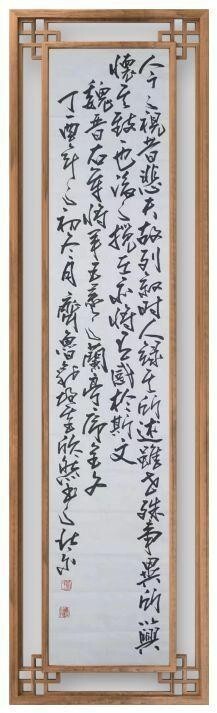 今之視昔悲夫故列敘時人錄其所述雖世殊事異所以興
懷其致也後之攬者亦將有感於斯文
魏晉右軍將軍王羲之蘭亭序全文
丁酉年之初月齊魯欣然書之